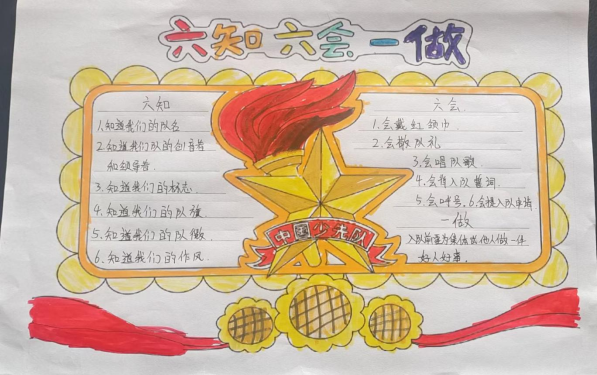 六知 六会 一做
六知
1.知道我们的队名
2.知道我们队的创立者
和领导者.
3.知道我们的标志.
4.知道我们的队旗
5.知道我们的队徽
6.知道我们的作风.
中国少先队
六会
1.会戴红领巾.
2.会敬队礼
3.会唱队歌
4.会背入队誓词.
5.会呼号.6.会写入队申请
一做
入队前要为集体或他人做一件
好人好事.